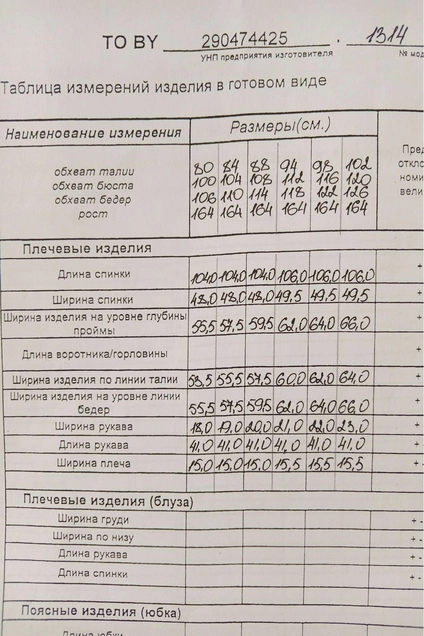 ТО BY 290474425 . 1314
УНП предприятия изготовителя № мод
Таблица измерений изделия в готовом виде
Наименование измерения Размеры(см.) Пред
откло
номи
вели
обхват талии 80 84 88 94 98 102
обхват бюста 100 104 108 112 116 120
обхват бедер 106 110 114 118 122 126
рост 164 164 164 164 164 164
Плечевые изделия
Длина спинки 104,0 104,0 104,0 106,0 106,0 106,0 +
Ширина спинки 48,0 48,0 48,0 49,5 49,5 49,5 +
Ширина изделия на уровне глубины
проймы 55,5 57,5 59,5 62,0 64,0 66,0 +
Длина воротника/горловины +
Ширина изделия по линии талии 53,5 55,5 57,5 60,0 62,0 64,0 +
Ширина изделия на уровне линии
бедер 55,5 57,5 59,5 62,0 64,0 66,0 +
Ширина рукава 18,0 19,0 20,0 21,0 22,0 23,0 + -
Длина рукава 41,0 41,0 41,0 41,0 41,0 41,0 + -
Ширина плеча 15,0 15,0 15,0 15,5 15,5 15,5 + -
Плечевые изделия (блуза)
Ширина груди + -
Ширина по низу + -
Длина рукава + -
Длина спинки + -
Поясные изделия (юбка)
Длина юбки